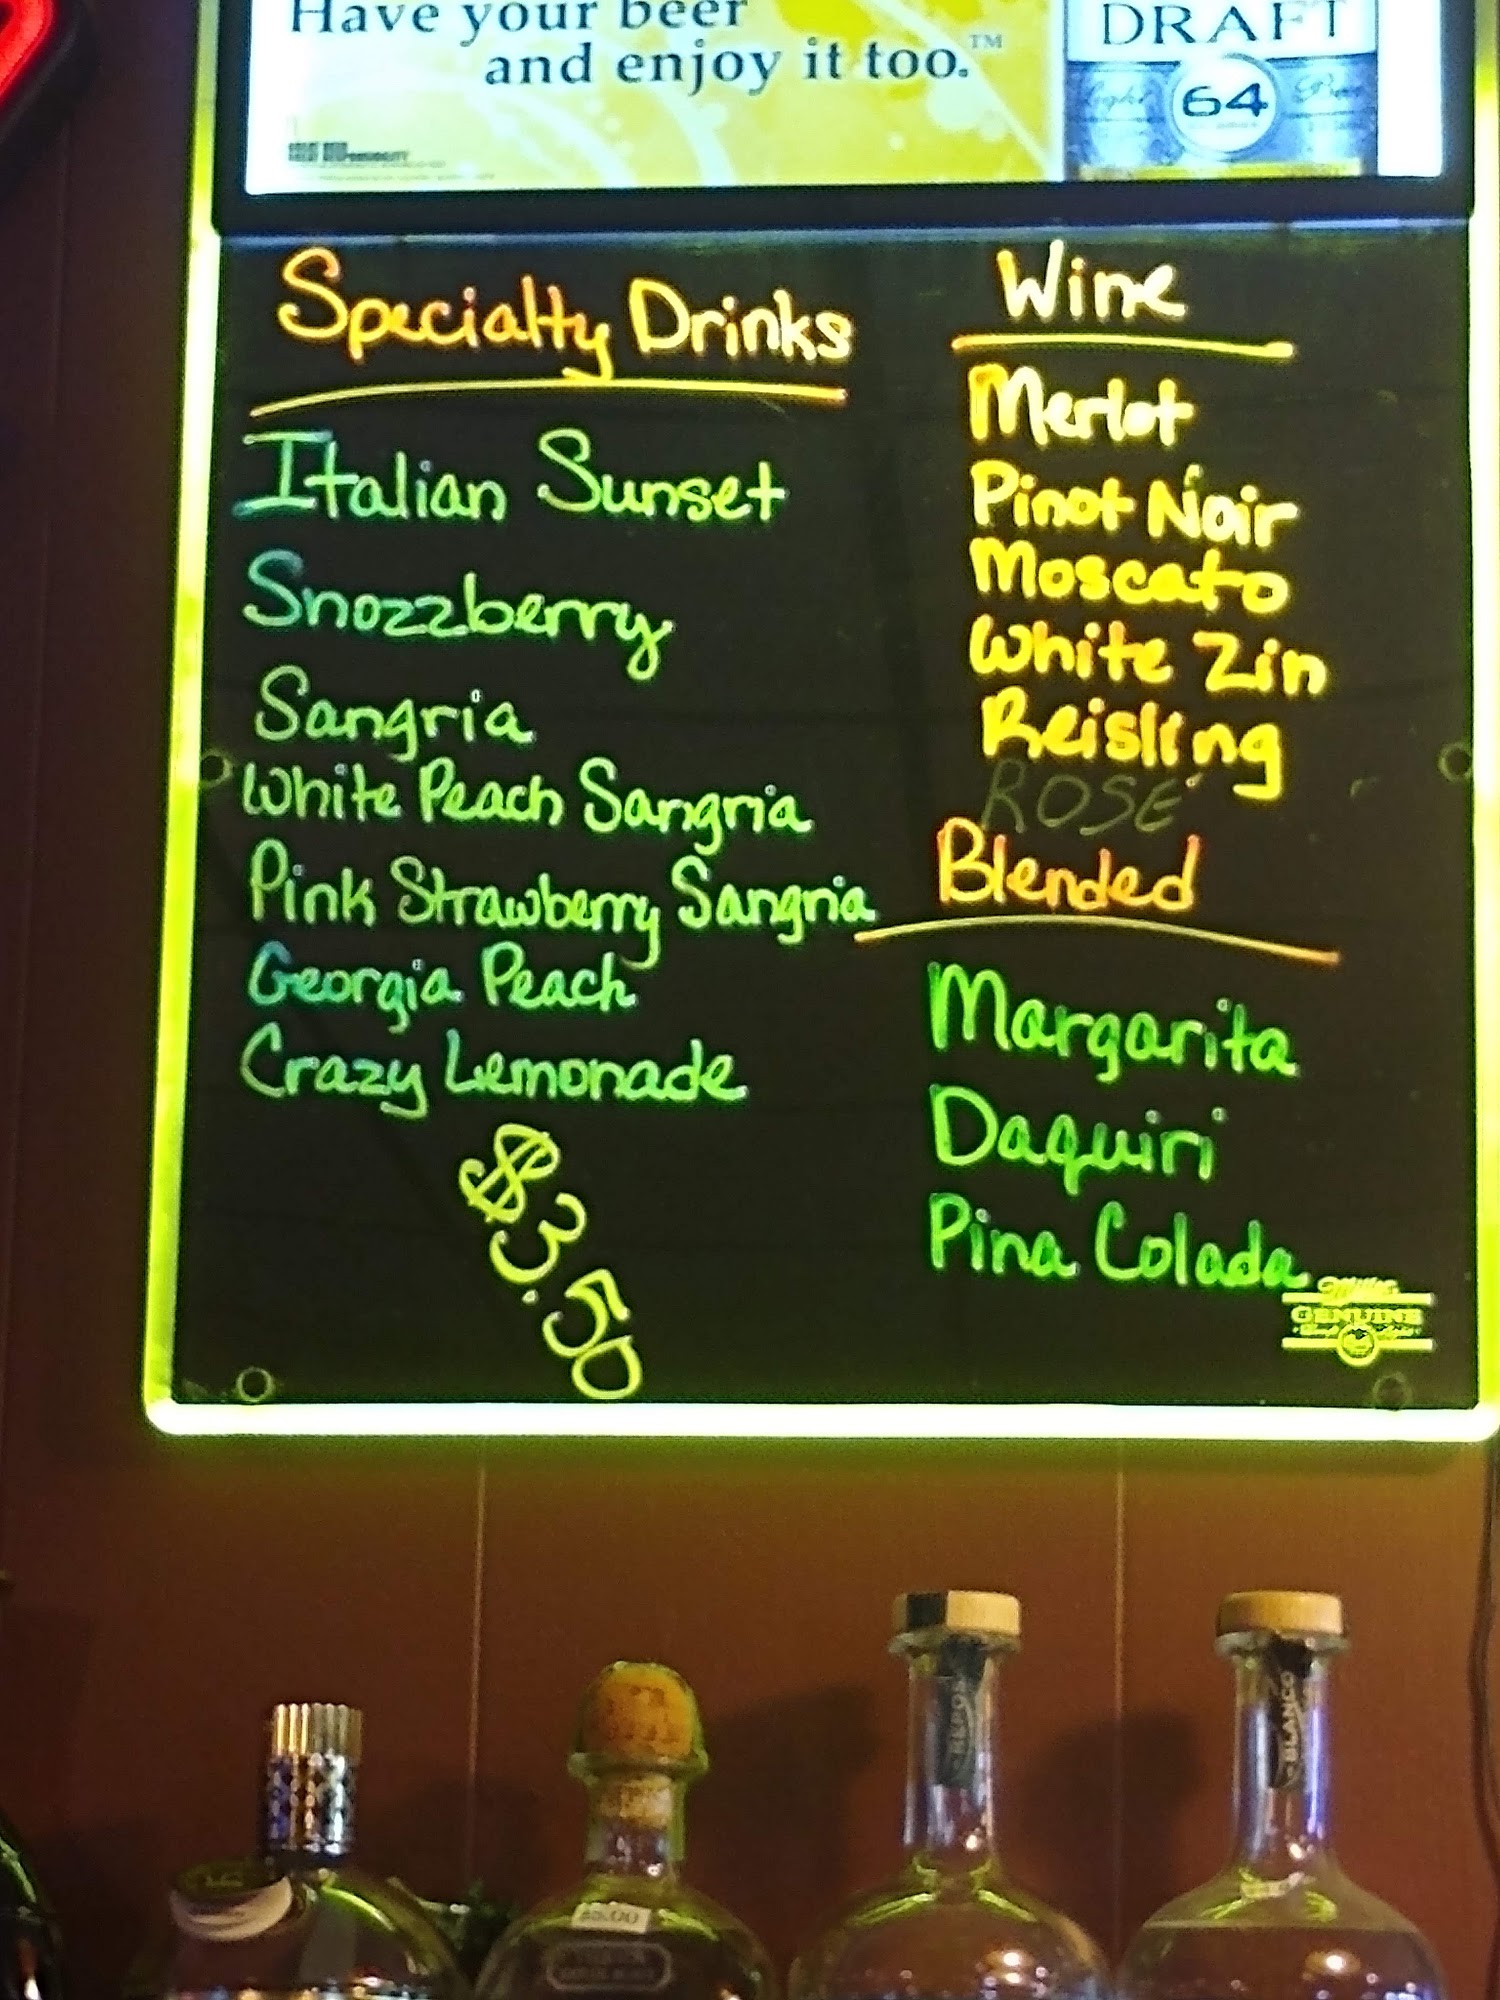 Have your beer
and enjoy it too.™
DRAFT
64
Specialty Drinks
Italian Sunset
Snozzberry
Sangria
White Peach Sangria
Pink Strawberry Sangria
Georgia Peach
Crazy Lemonade
$3.50
Wine
Merlot
Pinot Noir
Moscato
White Zin
Reisling
ROSE
Blended
Margarita
Daquiri
Pina Colada
Miller
GENUINE
REPOS
BLANCO